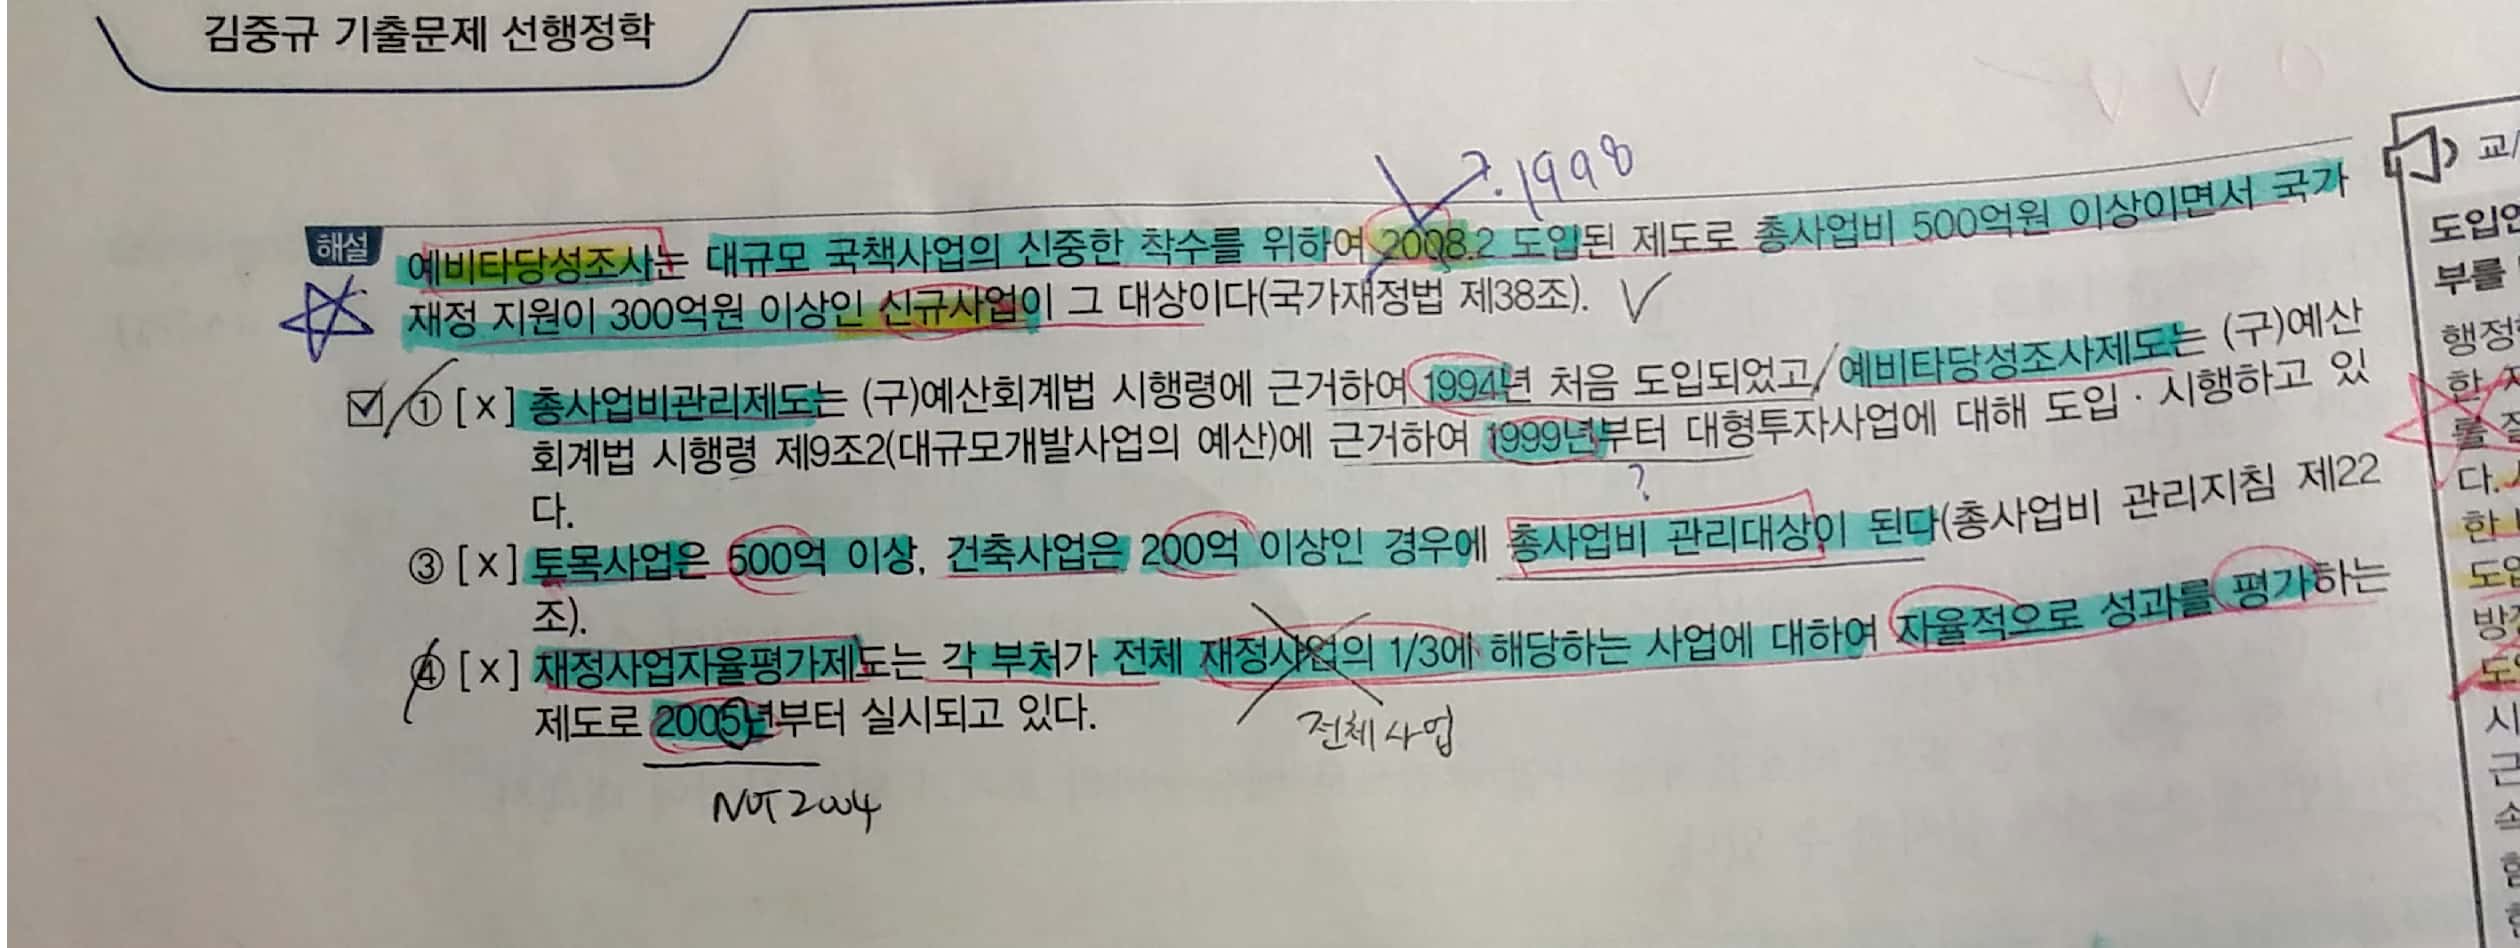 김중규 기출문제 선행정학
1998
해설 예비타당성조사는 대규모 국책사업의 신중한 착수를 위하여 2008.2 도입된 제도로 총사업비 500억원 이상이면서 국가
재정 지원이 300억원 이상인 신규사업이 그 대상이다(국가재정법 제38조).
① [×] 총사업비관리제도는 (구)예산회계법 시행령에 근거하여 1994년 처음 도입되었고 예비타당성조사제도는 (구)예산
회계법 시행령 제9조2(대규모개발사업의 예산)에 근거하여 1999년부터 대형투자사업에 대해 도입·시행하고 있
다.
?
③ [×] 토목사업은 500억 이상, 건축사업은 200억 이상인 경우에 총사업비 관리대상이 된다(총사업비 관리지침 제22
조).
④ [×] 재정사업자율평가제도는 각 부처가 전체 재정사업의 1/3에 해당하는 사업에 대하여 자율적으로 성과를 평가하는
제도로 2005년부터 실시되고 있다.
전체사업
NOT 2004
교/
부를
행정
한
를
다.
한
방
시
근